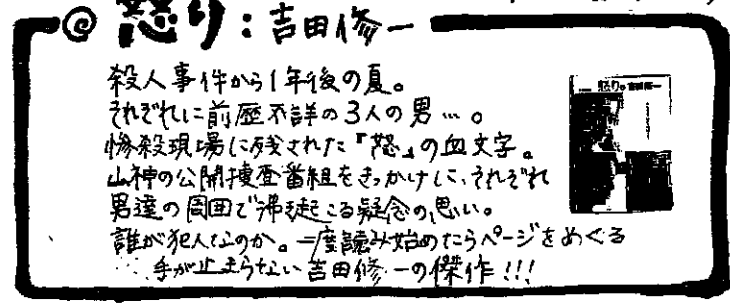 ◎ 怒り:吉田修一
殺人事件から1年後の夏。
それぞれに前歴不詳の3人の男…。
惨殺現場に残された『怒』の血文字。
山神の公開捜査番組をきっかけに、それぞれ
男達の周囲で沸き起こる疑念の思い。
誰が犯人なのか。一度読み始めたらページをめくる
手が止まらない吉田修一の傑作!!!
怒り 吉田修一